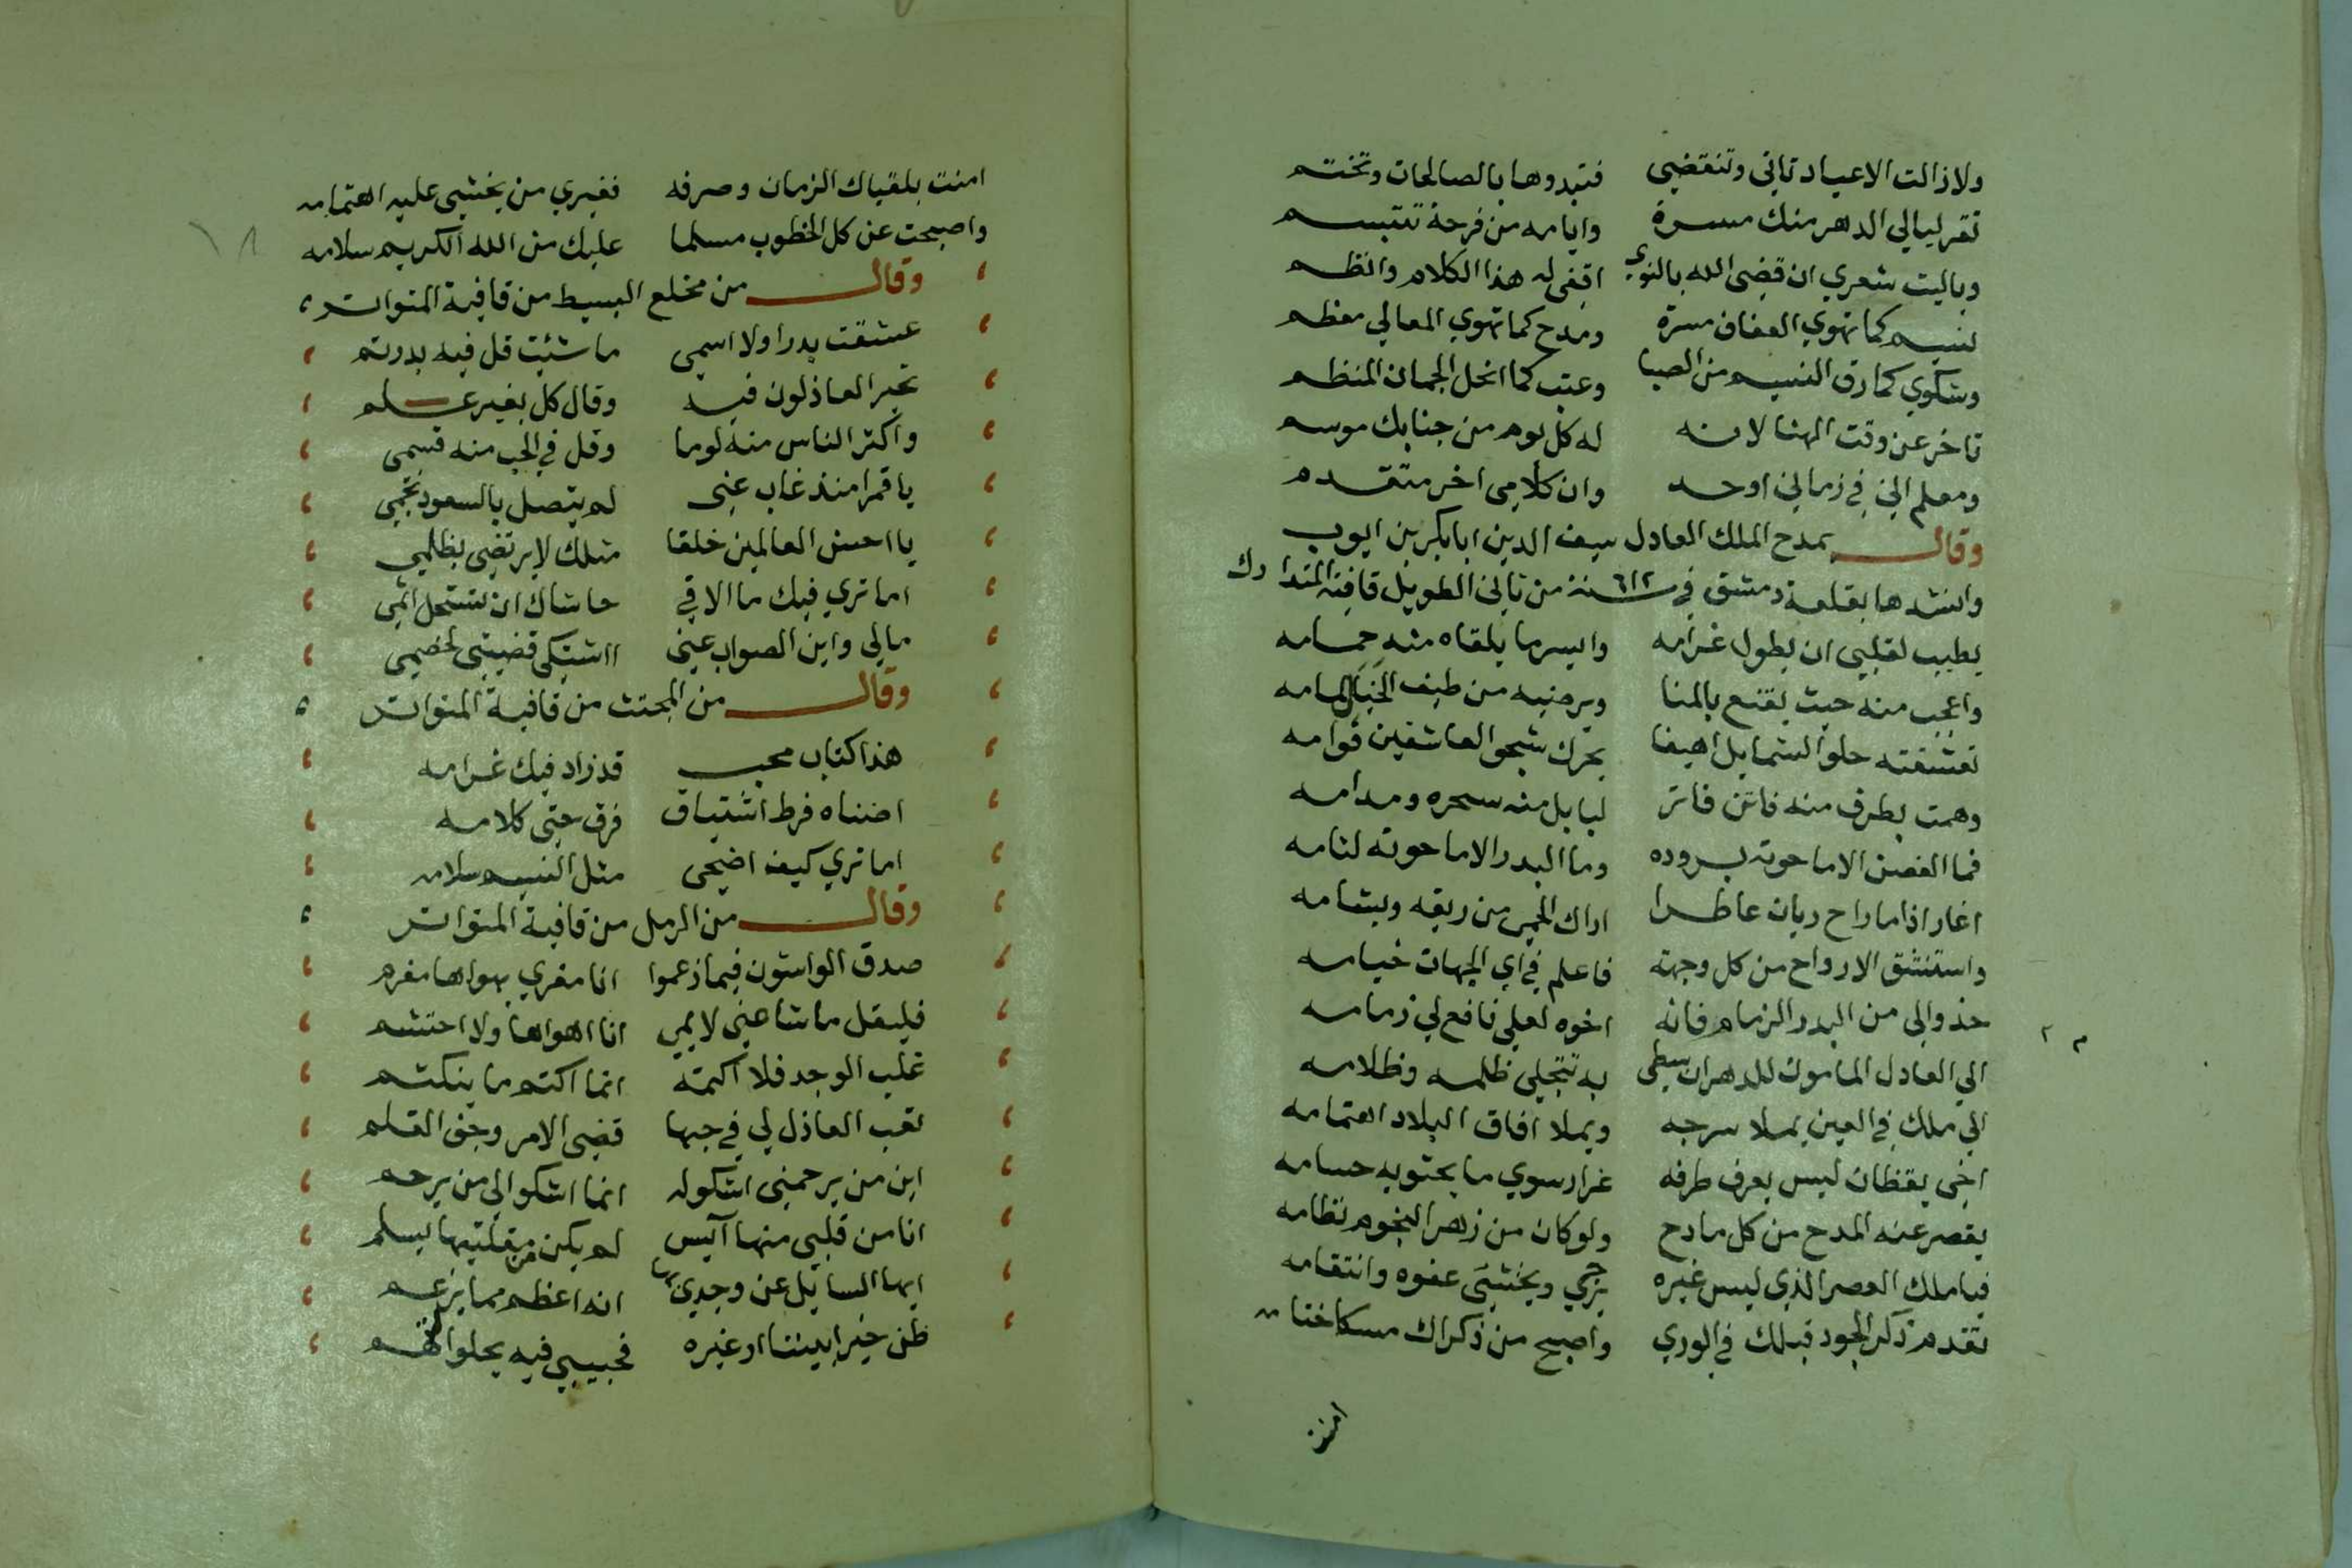 ولازالت الاعياد تاتي وتنقضي فتبدوها بالصالحات وتختتم
تقر ليالي الدهر منك مسرة وايامه من فرحة تتبسم
وياليت شعري ان قضى الله بالنوي اقفى له هذا الكلام وانظم
نسيم كما تهوي العفاف مسرة ومدح كما تهوي المعالي معظم
وشكوي كما رق النسيم من الصبا وعتب كما انحل الجمان المنظم
تاخر عن وقت الهنا لانه له كل يوم من جنابك موسم
ومعلم اني في زماني اوحد وان كلامي اخر متقدم
وقال يمدح الملك العادل سيف الدين ابابكر بن ايوب
وانشدها بقلعة دمشق في سنة ٦١٢ من ثاني الطويل قافية المتدارك
يطيب لقلبي ان يطول غرامه وايسر ما يلقاه منه حمامه
واعجب منه حيث يقنع بالمنا ويرضيه من طيف الخيال لمامه
تعشقته حلو الشمايل اهيفا يحرك شجو العاشقين قوامه
وهمت بطرف منه فاتن فاتر لبابل منه سحره ومدامه
فما الغصن الا ما حوته بروده وما البدر الا ما حوته لثامه
اغار اذا ما راح ريان عاطرا اراك الحمى من ريقه وبشامه
واستنشق الارواح من كل وجهة فاعلم في اي الجهات خيامه
خذوا لي من البدر الزمام فانه اخوه لعلي نافع لي زمامه
الي العادل المامون للدهر ان سطى به تتجلى ظلمه وظلامه
الي ملك في العين يملا سرجه ويملا افاق البلاد اهتمامه
اخى يقظان ليس يعرف طرفه غرار سوي ما يحتويه حسامه
يقصر عنه المدح من كل مادح ولو كان من زهر النجوم نظامه
فيا ملك العصر الذي ليس غيره يرجي ويخشى عفوه وانتقامه
تقدم ذكر الجود قبلك في الوري واصبح من ذكراك مسكا ختامه
امنت
امنت بلقياك الزمان وصرفه فغيري من يخشى عليه اهتمامه
واصبحت عن كل الخطوب مسلما عليك من الله الكريم سلامه
وقال من مخلع البسيط من قافية المتواتر
عشقت بدرا ولا اسمى ما شئت قل فيه بدر تم
تحير العاذلون فيه وقال كل بغير علم
واكثر الناس منه لوما وقل في الحب منه قسمى
يا قمرا منذ غاب عنى لم يتصل بالسعود نجمي
يا احسن العالمين خلقا مثلك لا يرتضى بظلمي
اما تري فيك ما الاقي حاشاك ان تستحل اثمي
مالي واين الصواب عنى ااشتكى قضيتى لخصمي
وقال من المجتث من قافية المتواتر
هذا كتاب محب قد زاد فيك غرامه
اضناه فرط اشتياق فرق حتى كلامه
اما تري كيف اضحى مثل النسيم سلامه
وقال من الرمل من قافية المتواتر
صدق الواشون فيما زعموا انا مغري بهواها مغرم
فليقل ما شا عني لايمي انا اهواها ولا احتشم
غلب الوجد فلا اكتمه انما اكتم ما ينكتم
تعب العاذل لي في حبها قضى الامر وجف القلم
اين من يرحمني اشكو له انما اشكو الي من يرحم
انا من قلبي منها آئيس لم يكن من مقلتيها يسلم
ايها السائل عن وجدي بها انه اعظم مما يزعم
ظن خيرا بيننا او غيره فحبيبي فيه يحلو التهم